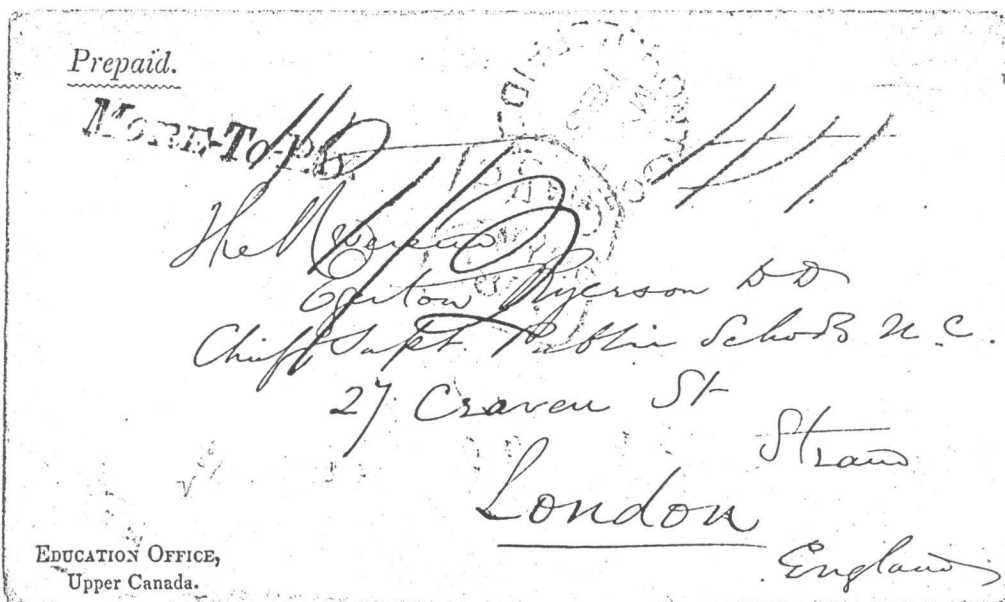 Prepaid.
MORE-TO-PAY.
The Reverend
Egerton Ryerson DD
Chief Supt. Public Schools U.C.
27 Craven St
Strand
London
England
EDUCATION OFFICE,
Upper Canada.